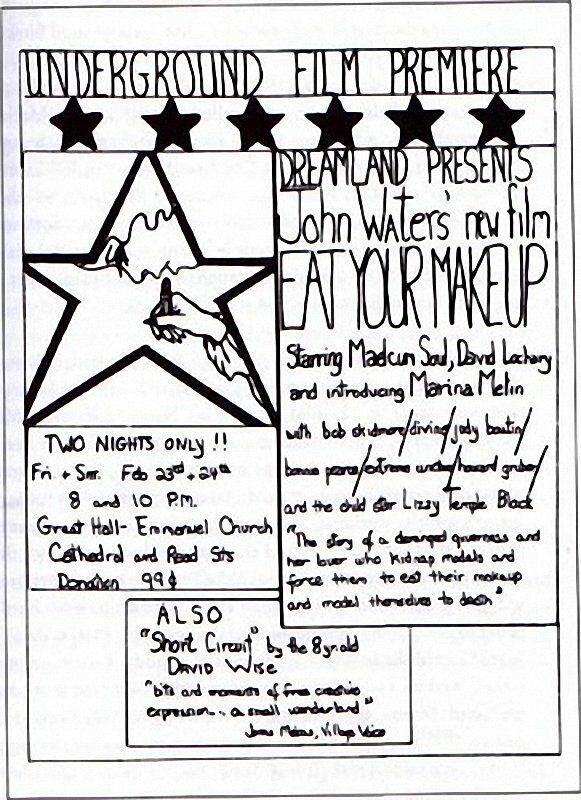 UNDERGROUND FILM PREMIERE
DREAMLAND PRESENTS
John Waters' new film
EAT YOUR MAKEUP
Starring Maelcum Soul, David Lochary
and introducing Marina Melin
with bob skidmore/divine/jody boutin/
bonnie pearce/extreme unction/howard gruber/
and the child star Lizzy Temple Black
"The story of a deranged governess and
her lover who kidnap models and
force them to eat their makeup
and model themselves to death"
TWO NIGHTS ONLY !!
Fri. + Sat. Feb 23rd + 24th
8 and 10 P.M.
Great Hall - Emmanuel Church
Cathedral and Read Sts
Donation 99¢
ALSO
"Short Circuit" by the 8 yr old
DAVID WISE
"bits and moments of free creative
expression.. a small wonderland"
Jonas Mekas, Village Voice